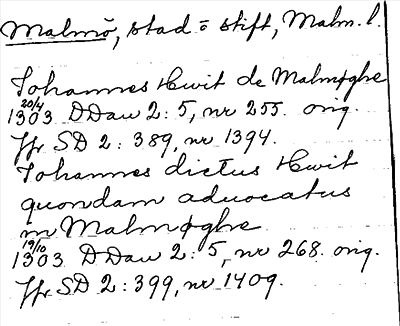 Malmö, stad o stift, Malm. l.
Johannes Hwit de Malmøghe
20/4
1303 DDan 2:5, nr 255. orig.
Jfr SD 2:389, nr 1394.
Johannes dictus Hwit
quondam aduocatus
in Malmøghe
19/10
1303 DDan 2:5, nr 268. orig.
Jfr SD 2:399, nr 1409.